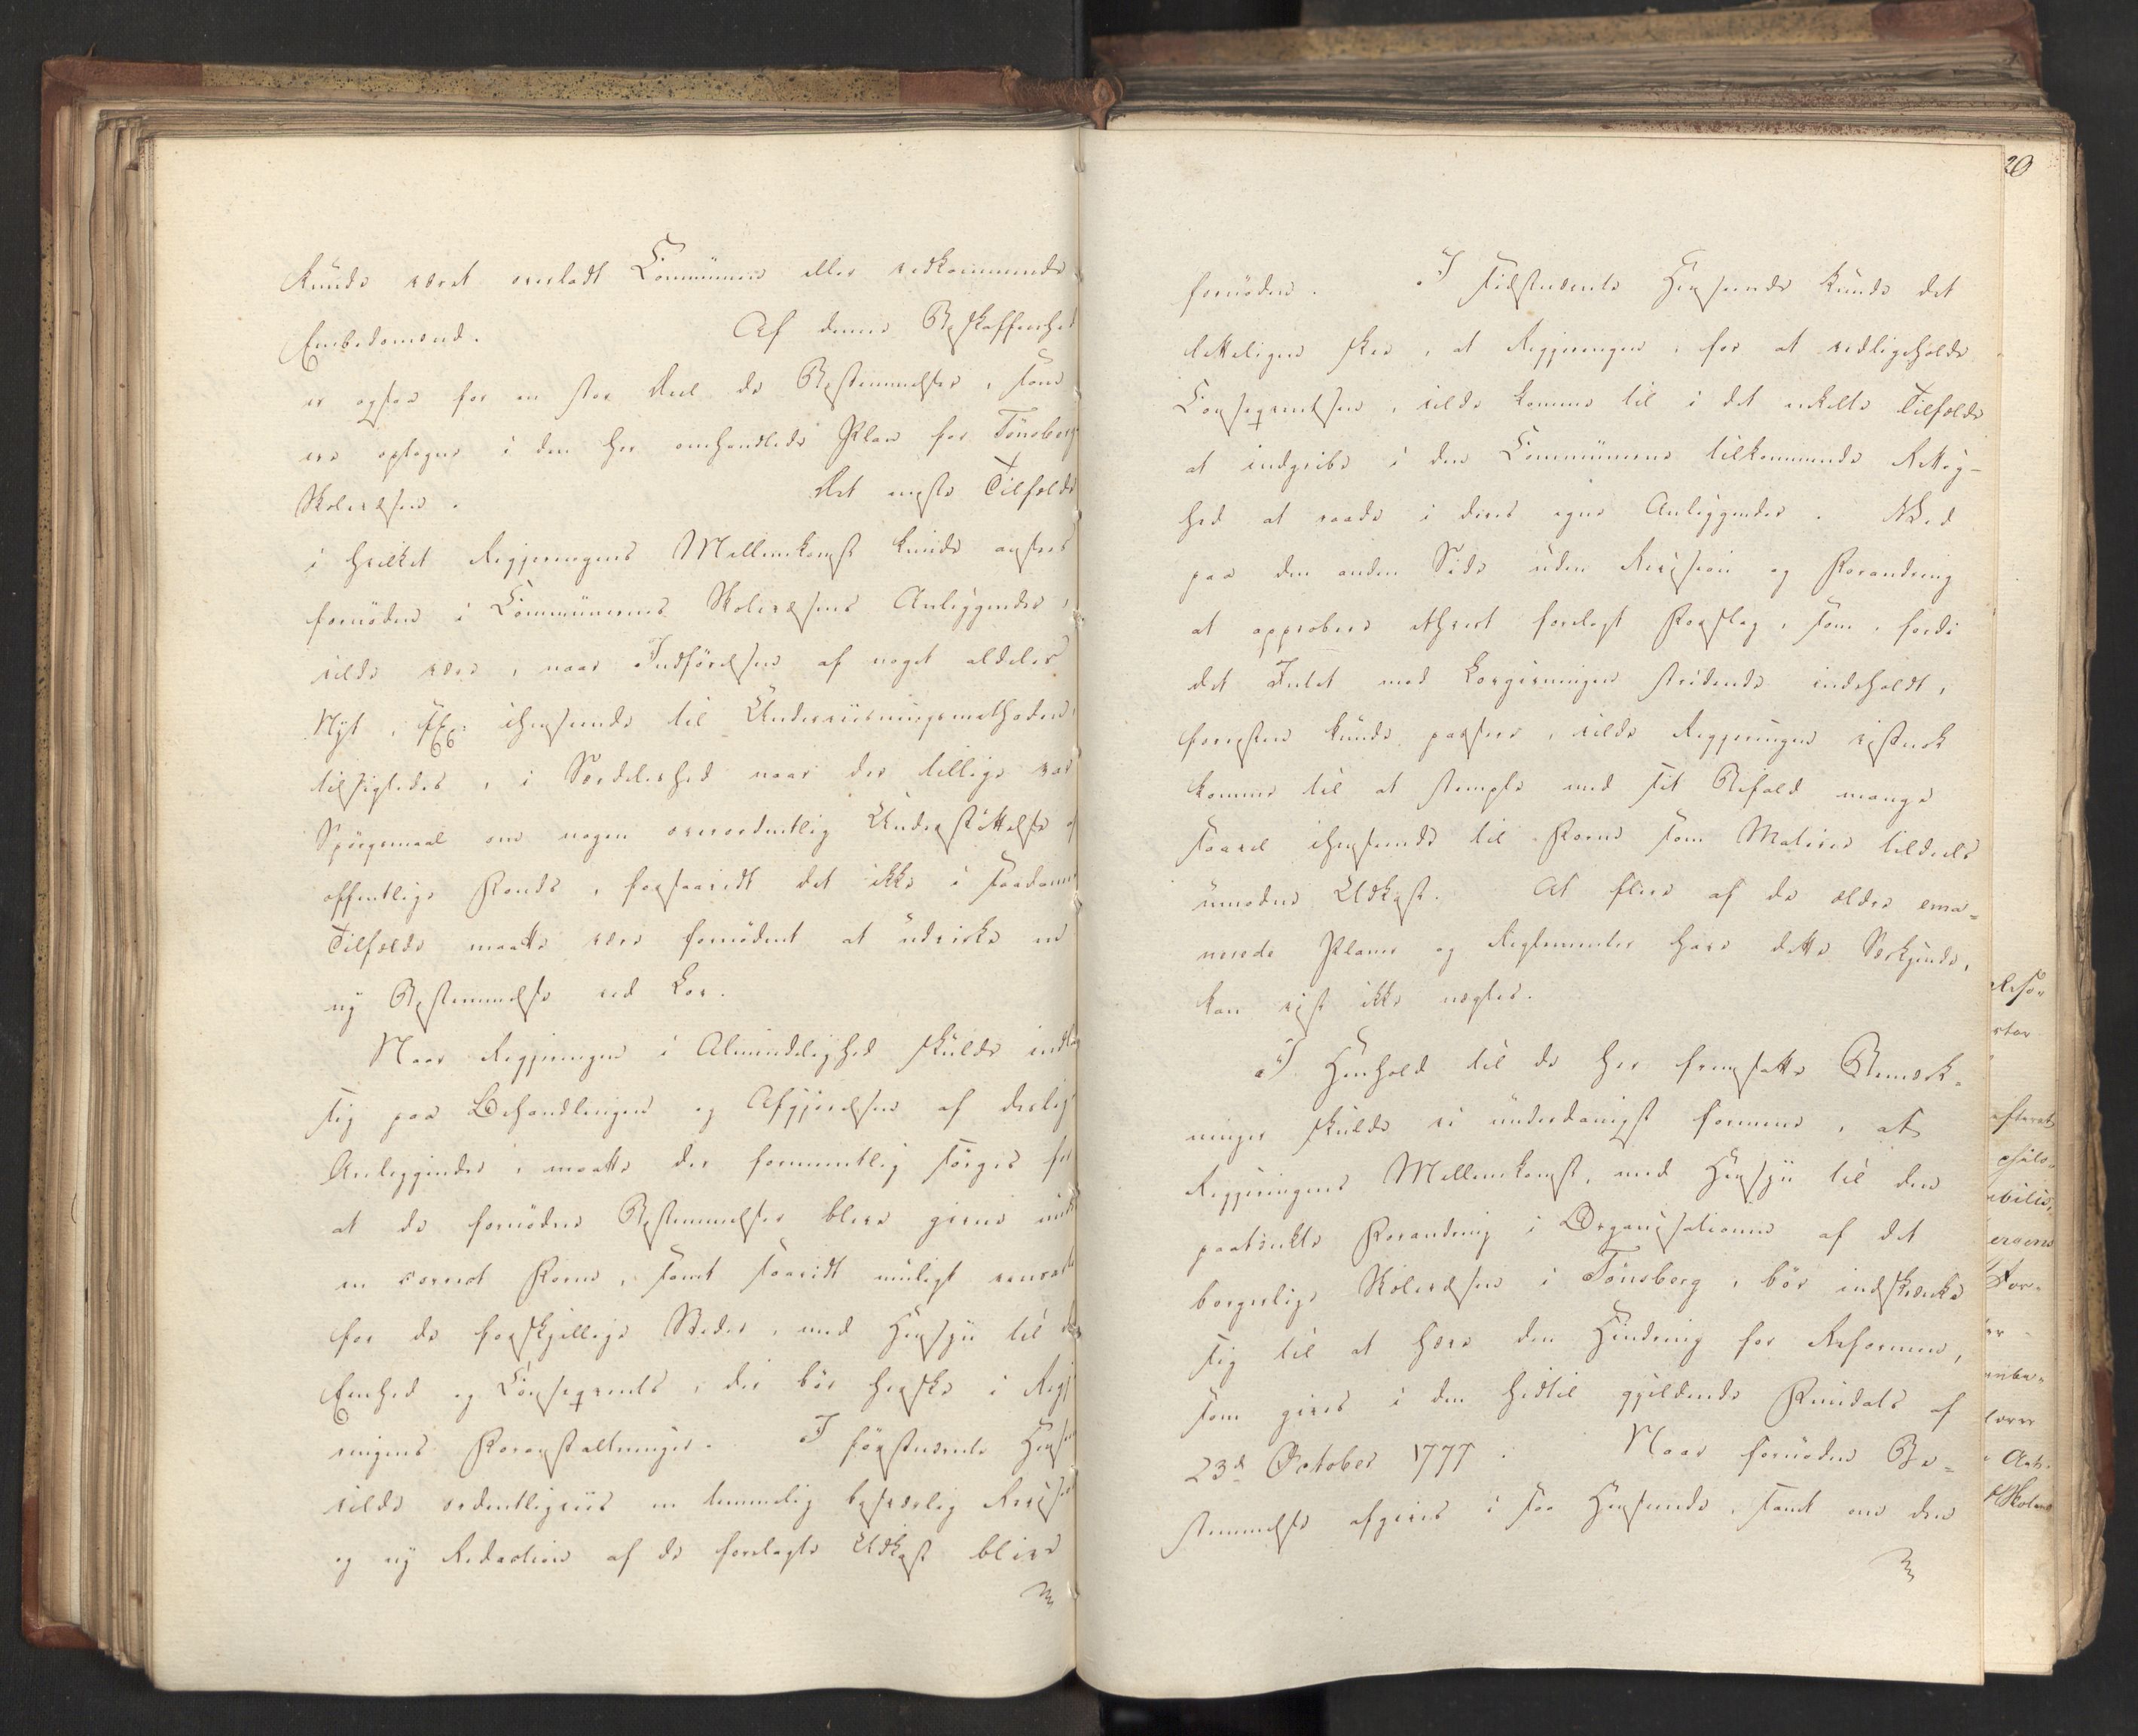 kunde været overladt Communen eller vedkommende
Embedsmænd. Af denne Beskaffenhed
er ogsaa for en stor Deel de Bestemmelser, som
ere optagne i den her omhandlede Plan for Tönsberg
Skolevæsen. Det eneste Tilfælde
i hvilket Regjeringens Mellemkomst kunde ansees
fornöden i Communernes Skolevæsens Anliggender,
vilde være, naar Indförelsen af noget aldeles
Nyt, f Ex: ihenseende til Underviisningsmethoden,
tilsigtedes, i Særdeleshed naar der tillige var
Spörgsmaal om nogen overordentlig Understöttelse af
offentlige Fonds, forsaavidt det ikke i saadanne
Tilfælde maatte være fornödent at udvirke en
ny Bestemmelse ved Lov.
Naar Regjeringen i Almindelighed skulde indlade
sig paa Behandlingen og Afgjörelsen af deslige
Anliggender, maatte der formeentlig sörges for
at de fornödne Bestemmelser bleve givne under
en correct Form, samt saavidt muligt eensartet
for de forskjellige Steder, med Hensyn til den
Eenhed og Conseqvents, der bör herske i Regje
ringens Foranstaltninger. I förstnævnte Hense
vilde ordentligviis en temmelig besværlig Revision
og ny Redaction af de forelagte Udkast blive
20
fornöden. I sidstnævnte Henseende kunde det
letteligen skee, at Regjeringen, for at vedligeholde
Conseqventsen, vilde komme til i det enkelte Tilfælde
at indgribe i den Communerne tilkommende Rettig-
hed at raade i deres egne Anliggender. Ved
paa den anden Side uden Revision og Forandring
at approbere ethvert forelagt Forslag, som, fordi
det Intet mod Lovgivningen stridende indeholdt,
forresten kunde passere, vilde Regjeringen vistnok
komme til at stemple med sit Bifald mange
saavel ihenseende til Form som Materie tildeels
umodne Udkast. At flere af de ældre ema-
nerede Planer og Reglementer have dette Særkjende,
kan vist ikke nægtes.
I Henhold til de her fremsatte Bemærk-
ninger skulde vi underdanigst formene, at
Regjeringens Mellemkomst, med Hensyn til den
paatænkte Forandring i Organisationen af det
borgerlige Skolevæsen i Tönsberg, bör indskrænke
sig til at hæve den Hindring for Reformen,
som gives i den hidtil gjeldende Fundats af
23de October 1777. Naar fornöden Be-
stemmelse afgives i saa Henseende, samt om den